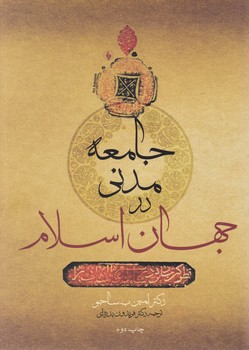 جامعه
مدنی
در
جهان اسلام
دکتر امین ب. ساجو
ترجمه دکتر فریدون بدره‌ای
چاپ دوم